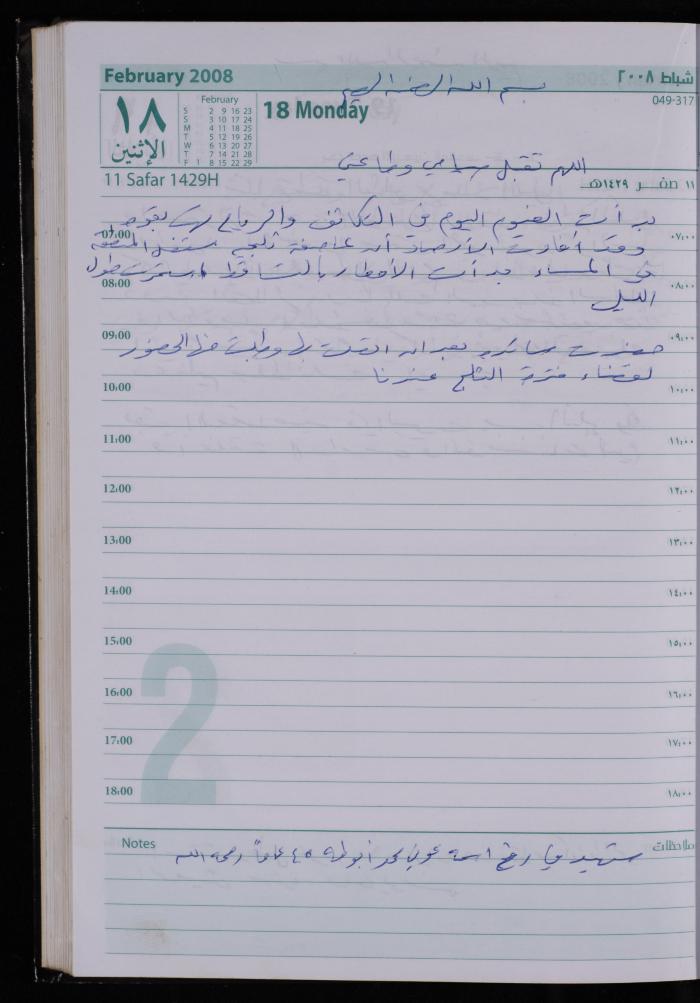 February 2008
شباط ٢٠٠٨
بسم الله الرحمن الرحيم
049-317
١٨
الإثنين
February
S 2 9 16 23
S 3 10 17 24
M 4 11 18 25
T 5 12 19 26
W 6 13 20 27
T 7 14 21 28
F 1 8 15 22 29
18 Monday
اللهم تقبل صيامي وطاعتي
11 Safar 1429H
١١ صفر ١٤٢٩هـ
بدأت الغيوم اليوم في التكاثف والرياح بقوة
07:00
٠٧:٠٠
وقد أفادت الأرصاد أن عاصفة ثلجية ستصل المنطقة
في المساء بدأت الأمطار بالتساقط واستمرت طول
08:00
٠٨:٠٠
الليل
09:00
٠٩:٠٠
حضرت بعد ان اتصلت بها وطلبت منها الحضور
لقضاء فترة الثلج عندنا
10:00
١٠:٠٠
11:00
١١:٠٠
12:00
١٢:٠٠
13:00
١٣:٠٠
14:00
١٤:٠٠
15:00
١٥:٠٠
16:00
١٦:٠٠
17:00
١٧:٠٠
18:00
١٨:٠٠
2
Notes
ملاحظات
شهيد في رفح اسمه محمد أبو ٤٥ عاماً رحمه الله